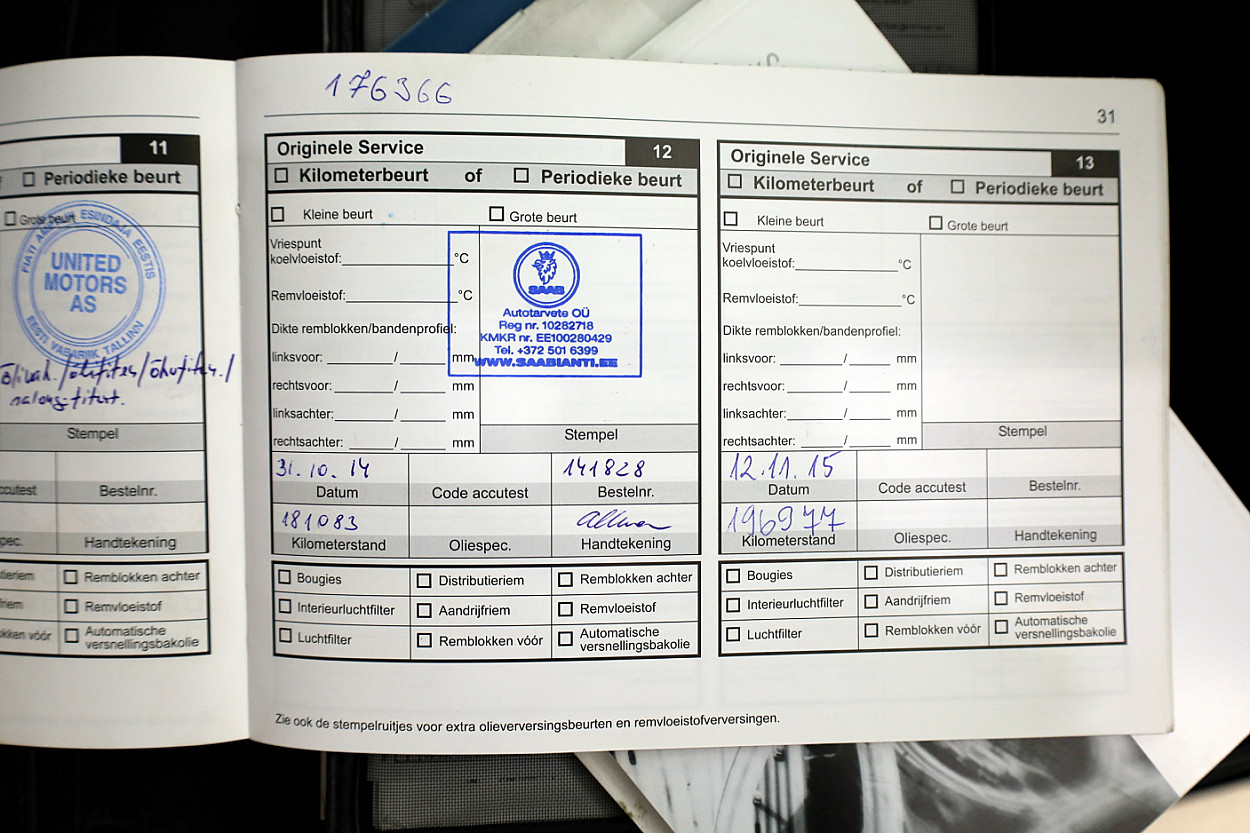 176366
31
11
Periodieke beurt
Grote beurt
ESINDAJA EESTIS
UNITED
MOTORS
AS
EESTI VABARIIK TALLINN
Stempel
Bestelnr.
Handtekening
Remblokken achter
Remvloeistof
Automatische
versnellingsbakolie
Originele Service 12
Kilometerbeurt of Periodieke beurt
Kleine beurt Grote beurt
Vriespunt
koelvloeistof: °C
Remvloeistof: °C
Dikte remblokken/bandenprofiel:
linksvoor: / mm
rechtsvoor: / mm
linksachter: / mm
rechtsachter: / mm
SAAB
Autotarvete OÜ
Reg nr. 10282718
KMKR nr. EE100280429
Tel. +372 501 6399
WWW.SAABIANTI.EE
Stempel
31.10.14 141828
Datum Code accutest Bestelnr.
181083
Kilometerstand Oliespec. Handtekening
Bougies Distributieriem Remblokken achter
Interieurluchtfilter Aandrijfriem Remvloeistof
Luchtfilter Remblokken vóór Automatische
versnellingsbakolie
Originele Service 13
Kilometerbeurt of Periodieke beurt
Kleine beurt Grote beurt
Vriespunt
koelvloeistof: °C
Remvloeistof: °C
Dikte remblokken/bandenprofiel:
linksvoor: / mm
rechtsvoor: / mm
linksachter: / mm
rechtsachter: / mm
Stempel
12.11.15
Datum Code accutest Bestelnr.
196977
Kilometerstand Oliespec. Handtekening
Bougies Distributieriem Remblokken achter
Interieurluchtfilter Aandrijfriem Remvloeistof
Luchtfilter Remblokken vóór Automatische
versnellingsbakolie
Zie ook de stempelruitjes voor extra olieverversingsbeurten en remvloeistofverversingen.